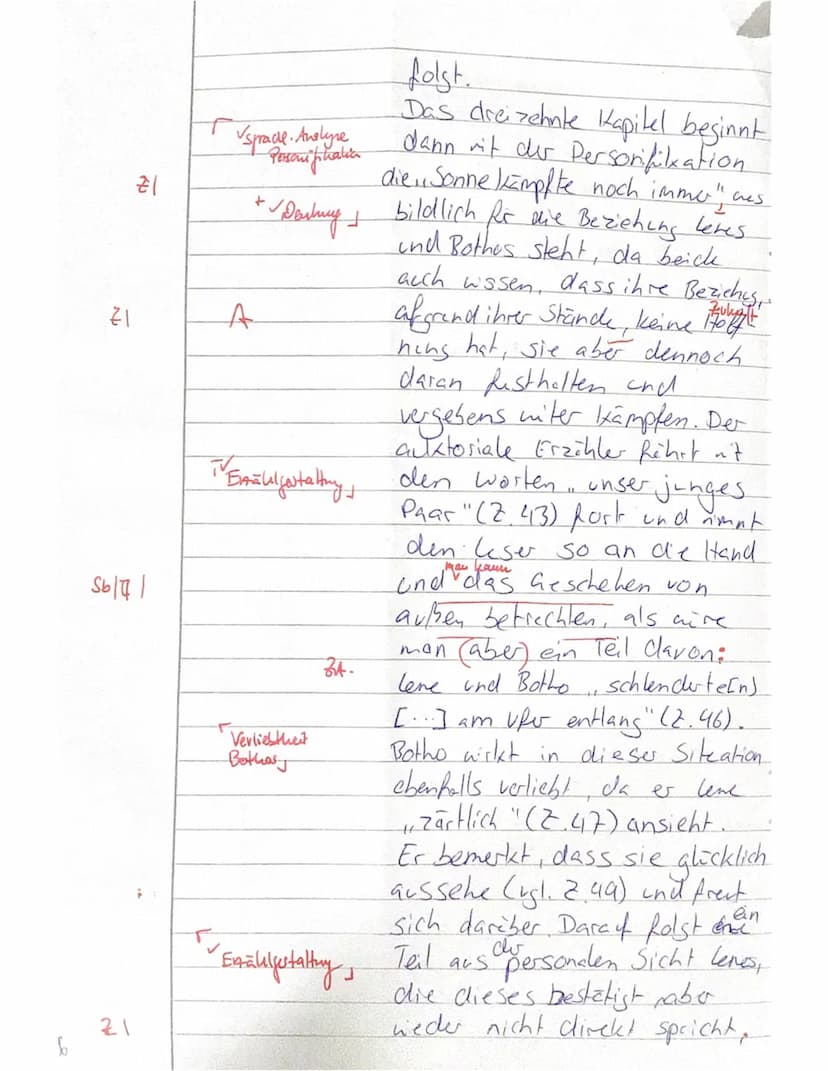 folgt.
Das dreizehnte Kapitel beginnt
√ Sprachl. Analyse
Personifikation
dann mit der Personifikation
Z|
die „Sonne kämpfte noch immer", was
+ √ Deutung
bildlich für die Beziehung Lenes
und Bothos steht, da beide
auch wissen, dass ihre Beziehung,
Z|
A
aufgrund ihrer Stände, keine Hoff-
Zukunft
nung hat, sie aber dennoch
daran festhalten und
vergebens weiter kämpfen. Der
auktoriale Erzähler führt mit
√ Erzählgestaltung
den Worten „unser junges
Paar" (Z. 43) fort und nimmt
den Leser so an die Hand
man kann
Sb|
und das Geschehen von
außen betrachten, als wäre
man (aber) ein Teil davon:
ZA.
Lene und Botho „schlenderte[n]
[...] am Ufer entlang" (Z. 46).
Verliebtheit
Bothos
Botho wirkt in dieser Situation
ebenfalls verliebt, da er Lene
„zärtlich" (Z. 47) ansieht.
Er bemerkt, dass sie glücklich
aussehe (vgl. Z. 49) und freut
sich darüber. Darauf folgt ein
√ Erzählgestaltung
Teil aus der personalen Sicht Lenes,
die dieses bestätigt, aber
Z|
wieder nicht direkt spricht,